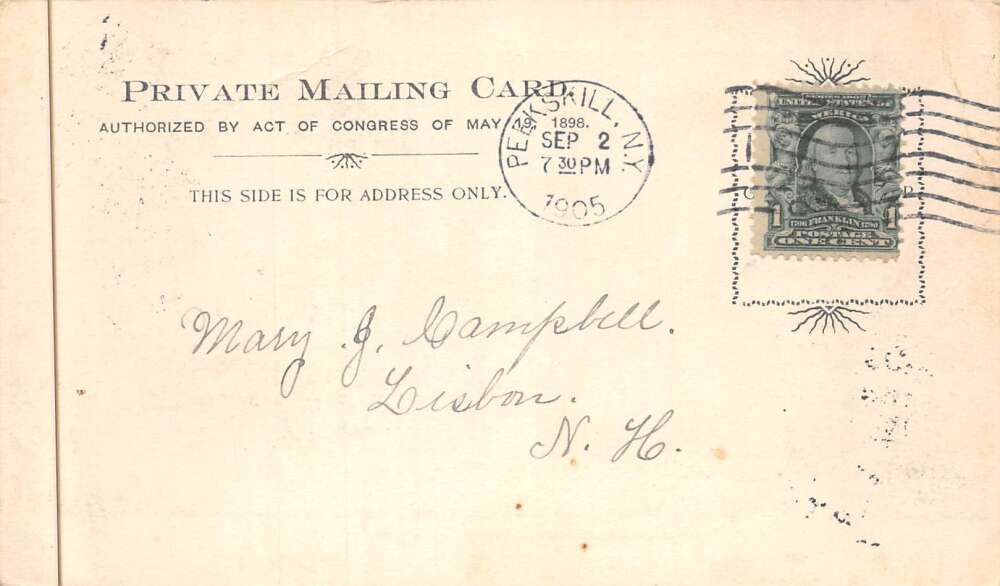 PRIVATE MAILING CARD.
AUTHORIZED BY ACT OF CONGRESS OF MAY 19, 1898.
THIS SIDE IS FOR ADDRESS ONLY.
PEEKSKILL, N.Y.
SEP 2
7 30 PM
1905
UNITED STATES
AMERICA
1 1706 FRANKLIN 1790 1
POSTAGE
ONE CENT
Mary J. Campbell.
Lisbon.
N. H.